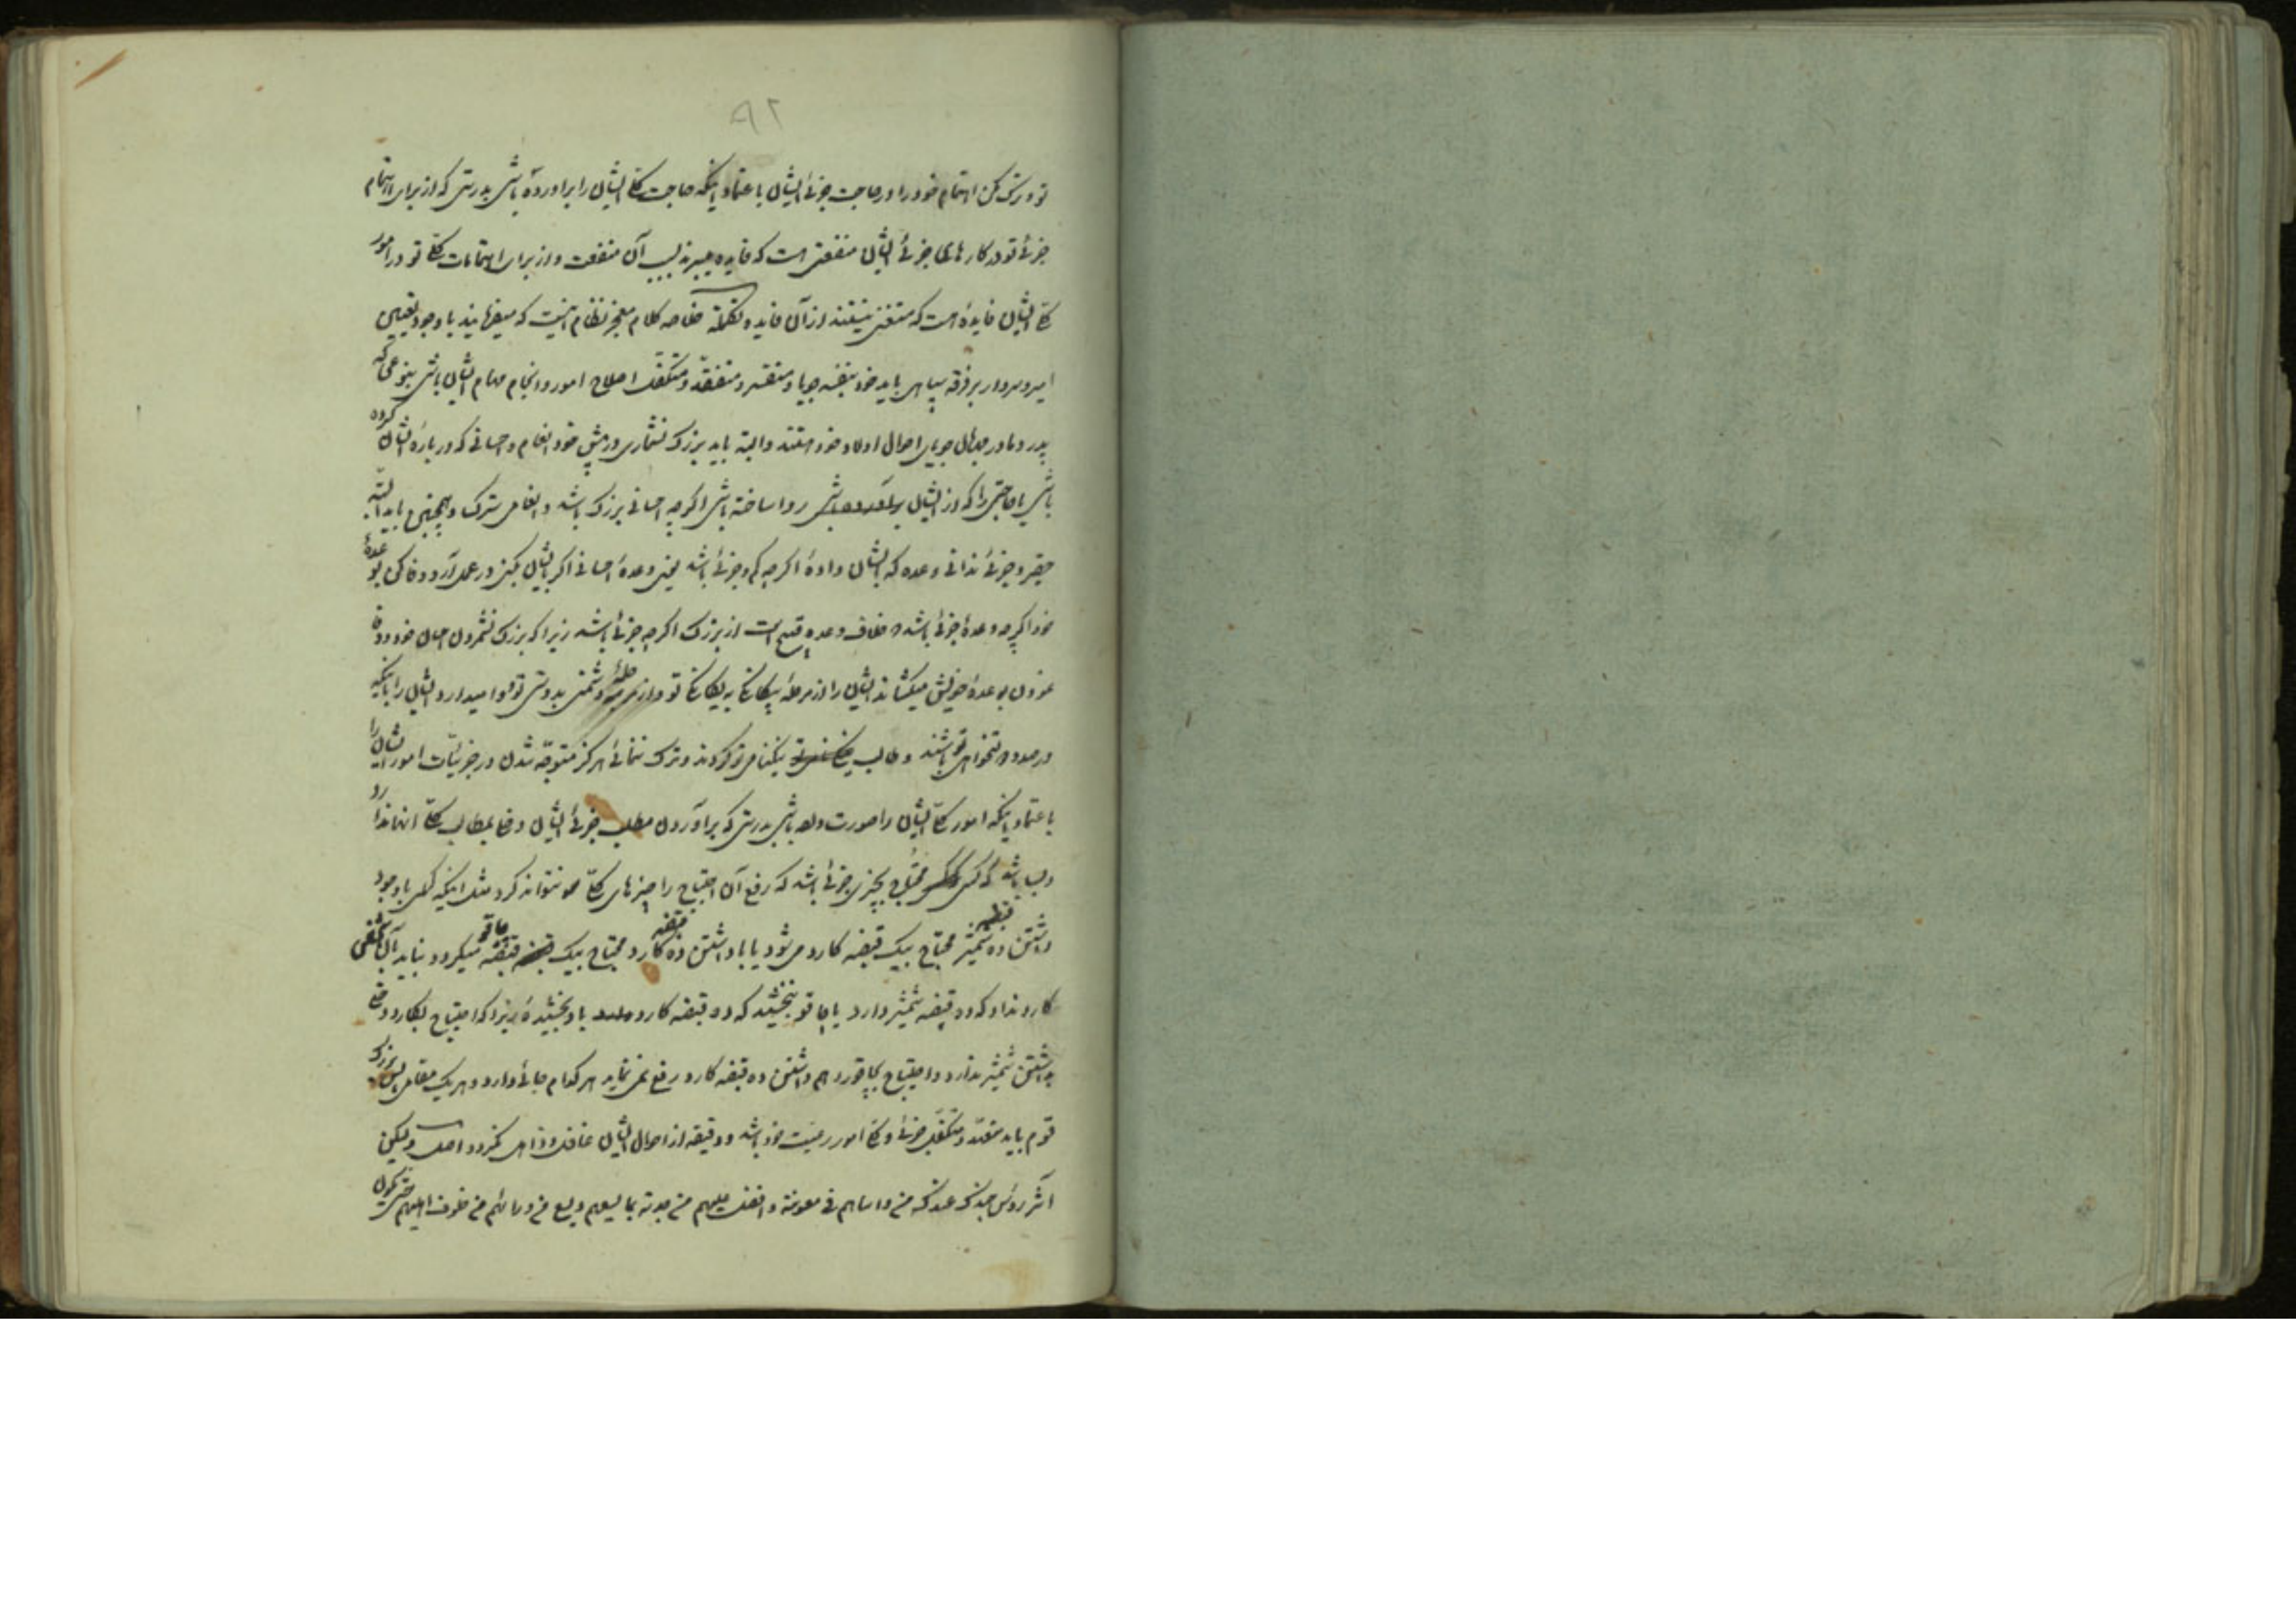 ۹۲
تو و ترک مکن اهتمام خود را در حاجت جزئی ایشان باعتماد اینکه حاجت کلی ایشان را برآورده باشی بدرستی که از برای اهتمام
جزئی تو در کارهای جزئی ایشان منفعتی است که فایده میبرند بسبب آن منفعت و از برای اهتمامات کلی تو در امور
کلی ایشان فایده است که مستغنی نیستند از آن فایده تکمله خلاصه کلام معجز نظام اینست که میفرمایند با وجود تعیین
امیر و سردار بر فرقه سپاهی باید خود بنفسه جویا و متفسر و متفقد و متکفل اصلاح امور و انجام مهام ایشان باشی بنوعی که
پدر و مادر جویای احوال اولاد خود هستند و البته باید بزرگ نشماری در پیش خود انعام و احسانی که درباره ایشان کرده
باشی یا حاجتی را که از ایشان برآورده باشی روا ساخته باشی اگرچه احسانی بزرگ باشد و انعامی سترک و همچنین باید البته
حقیر و جزئی ندانی وعده که بایشان داده اگرچه کم و جزئی باشد یعنی وعده احسانی اگر بایشان بکنی در عمل آر و وفا کن بوعده
خود اگرچه وعده جزئی باشد خلاف وعده قبیح است از بزرگ اگرچه جزئی باشد زیرا که بزرگ نشمردن احسان خود و وفا
نمودن بوعده خویش میکشاند ایشان را از مرحله بیگانگی به یگانگی تو و از مرحله دشمنی بدوستی تو وامیدارد ایشان را باینکه
در صدد تو باشند و طالب نیکنامی تو گردند و ترک ننمائی هرگز متوجه شدن در جزئیات امور ایشان را
باعتماد اینکه امور کلی ایشان را صورت داده باشی بدرستی که برآوردن مطلب جزئی ایشان دخلی بمطالب کلی آنها ندارد
و بسا باشد که کسی محتاج بچیزی جزئی باشد که رفع آن احتیاج را چیزهای کلی نتواند کرد مثل اینکه کسی باوجود
داشتن ده قبضه شمشیر محتاج بیک قبضه کارد میشود یا با داشتن ده قبضه کارد محتاج بیک قبضه چاقو میگردد نباید آن شخص
کارد نداد که ده قبضه شمشیر دارد یا چاقو نبخشید که ده قبضه کارد باو بخشیده زیرا که احتیاج بکارد دخلی
بداشتن شمشیر ندارد و احتیاج بچاقو را هم داشتن ده قبضه کارد رفع نمی نماید هر کدام جائی دارد و هر یک مقامی پس بزرگ
قوم باید متفقد و متکفل جزئی و کلی امور رعیت خود باشد و دقیقه از احوال ایشان غافل و ذاهل نگردد اصل ولیکن
آثر رؤس جندک عندک من واساهم فی معونته وافضل علیهم من جدته بما یسعهم ویسع من ورائهم من خلوف اهلیهم حتی یکون